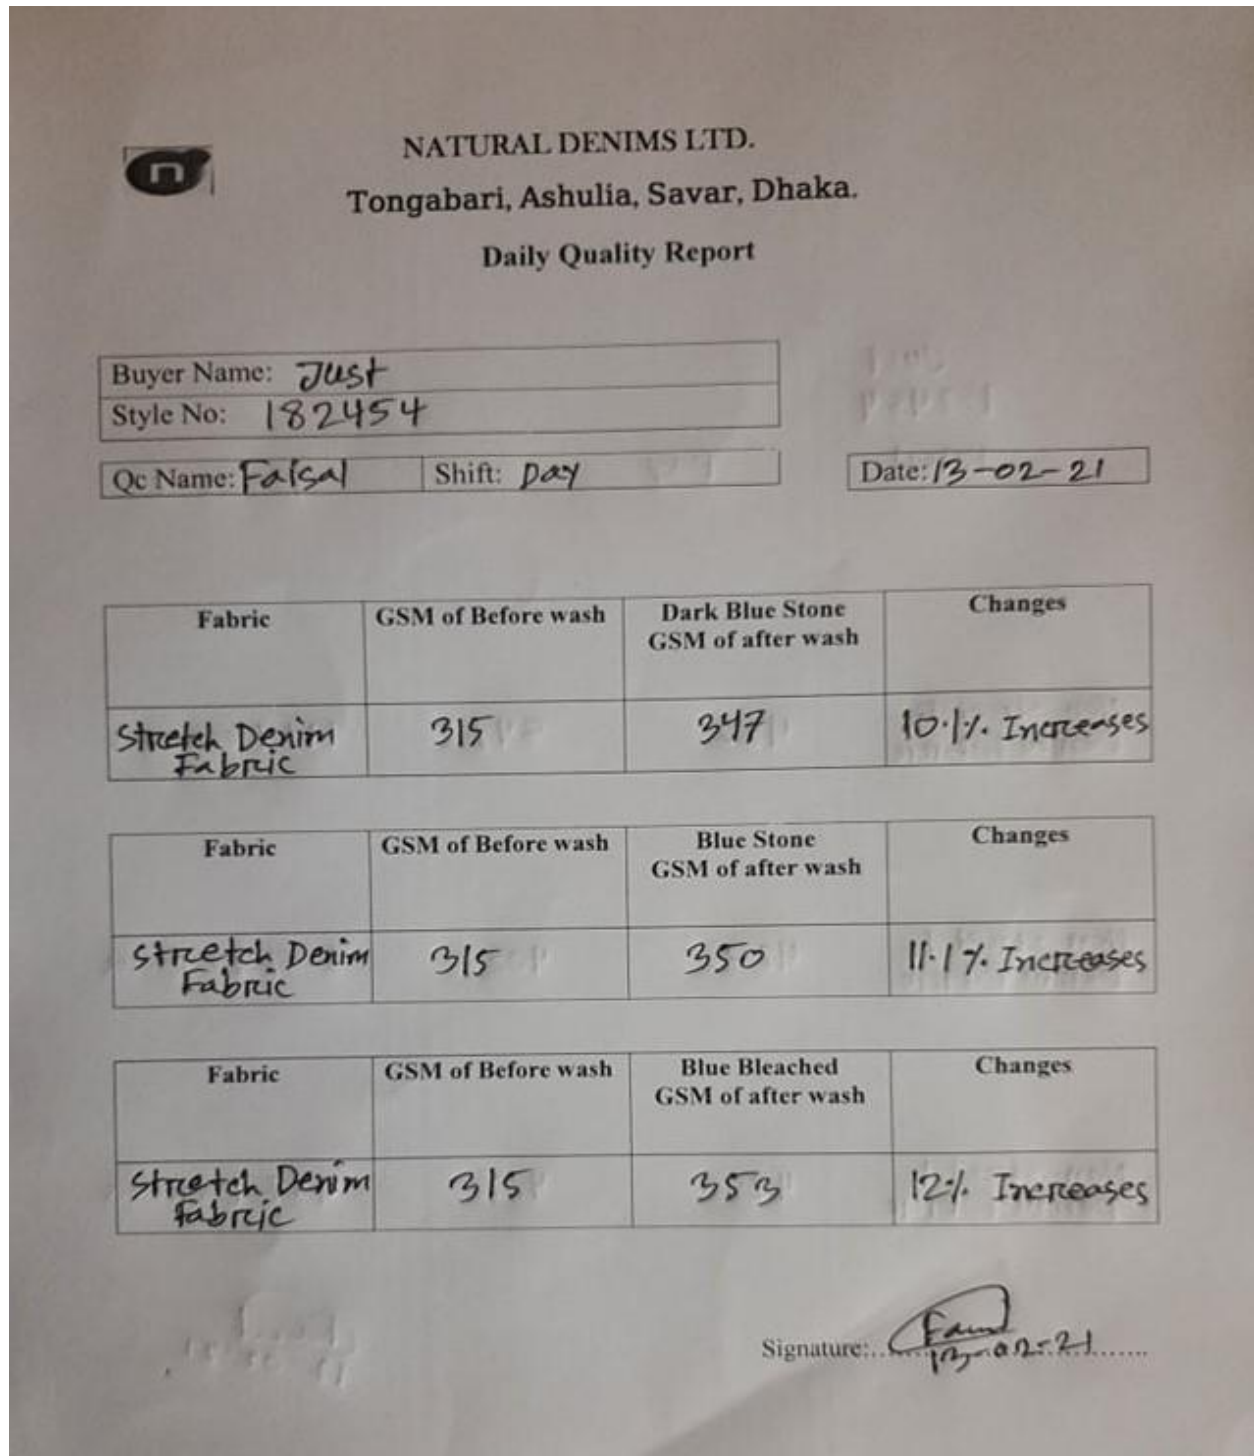 n
NATURAL DENIMS LTD.
Tongabari, Ashulia, Savar, Dhaka.
Daily Quality Report
Buyer Name: Just
Style No: 182454
Qc Name: Faisal Shift: Day Date: 13-02-21
Fabric GSM of Before wash Dark Blue Stone GSM of after wash Changes
Stretch Denim Fabric 315 347 10.1% Increases
Fabric GSM of Before wash Blue Stone GSM of after wash Changes
Stretch Denim Fabric 315 350 11.1% Increases
Fabric GSM of Before wash Blue Bleached GSM of after wash Changes
Stretch Denim Fabric 315 353 12% Increases
Signature:
13-02-21